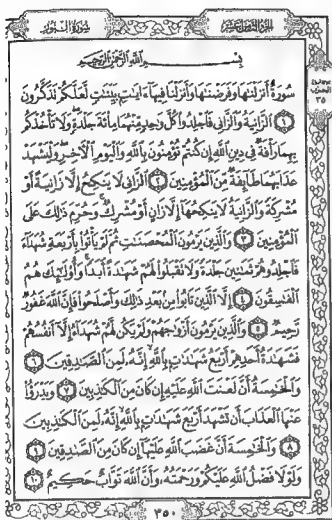 سُورَةُ النُّورِ
الجزء الثامن عشر
بِسْمِ ٱللَّهِ ٱلرَّحْمَٰنِ ٱلرَّحِيمِ
سُورَةٌ أَنزَلْنَٰهَا وَفَرَضْنَٰهَا وَأَنزَلْنَا فِيهَآ ءَايَٰتٍۭ بَيِّنَٰتٍ لَّعَلَّكُمْ تَذَكَّرُونَ
١ ٱلزَّانِيَةُ وَٱلزَّانِى فَٱجْلِدُوا۟ كُلَّ وَٰحِدٍ مِّنْهُمَا مِا۟ئَةَ جَلْدَةٍ وَلَا تَأْخُذْكُم
بِهِمَا رَأْفَةٌ فِى دِينِ ٱللَّهِ إِن كُنتُمْ تُؤْمِنُونَ بِٱللَّهِ وَٱلْيَوْمِ ٱلْءَاخِرِ وَلْيَشْهَدْ
عَذَابَهُمَا طَآئِفَةٌ مِّنَ ٱلْمُؤْمِنِينَ ٢ ٱلزَّانِى لَا يَنكِحُ إِلَّا زَانِيَةً أَوْ
مُشْرِكَةً وَٱلزَّانِيَةُ لَا يَنكِحُهَآ إِلَّا زَانٍ أَوْ مُشْرِكٌ وَحُرِّمَ ذَٰلِكَ عَلَى
ٱلْمُؤْمِنِينَ ٣ وَٱلَّذِينَ يَرْمُونَ ٱلْمُحْصَنَٰتِ ثُمَّ لَمْ يَأْتُوا۟ بِأَرْبَعَةِ شُهَدَآءَ
فَٱجْلِدُوهُمْ ثَمَٰنِينَ جَلْدَةً وَلَا تَقْبَلُوا۟ لَهُمْ شَهَٰدَةً أَبَدًا وَأُو۟لَٰٓئِكَ هُمُ
ٱلْفَٰسِقُونَ ٤ إِلَّا ٱلَّذِينَ تَابُوا۟ مِنۢ بَعْدِ ذَٰلِكَ وَأَصْلَحُوا۟ فَإِنَّ ٱللَّهَ غَفُورٌ
رَّحِيمٌ ٥ وَٱلَّذِينَ يَرْمُونَ أَزْوَٰجَهُمْ وَلَمْ يَكُن لَّهُمْ شُهَدَآءُ إِلَّآ أَنفُسُهُمْ
فَشَهَٰدَةُ أَحَدِهِمْ أَرْبَعُ شَهَٰدَٰتٍۭ بِٱللَّهِ إِنَّهُۥ لَمِنَ ٱلصَّٰدِقِينَ ٦
وَٱلْخَٰمِسَةُ أَنَّ لَعْنَتَ ٱللَّهِ عَلَيْهِ إِن كَانَ مِنَ ٱلْكَٰذِبِينَ ٧ وَيَدْرَؤُا۟
عَنْهَا ٱلْعَذَابَ أَن تَشْهَدَ أَرْبَعَ شَهَٰدَٰتٍۭ بِٱللَّهِ إِنَّهُۥ لَمِنَ ٱلْكَٰذِبِينَ
٨ وَٱلْخَٰمِسَةَ أَنَّ غَضَبَ ٱللَّهِ عَلَيْهَآ إِن كَانَ مِنَ ٱلصَّٰدِقِينَ ٩
وَلَوْلَا فَضْلُ ٱللَّهِ عَلَيْكُمْ وَرَحْمَتُهُۥ وَأَنَّ ٱللَّهَ تَوَّابٌ حَكِيمٌ ١٠
الحزب
٣٥
٣٥٠